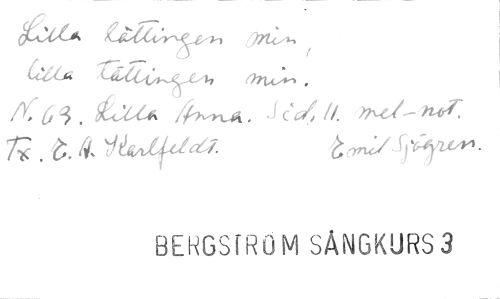 Lilla lättingen min,
lilla tättingen min.
N. 63. Lilla Anna. Sid. 11. mel-not.
Tx. E. A. Karlfeldt. Emil Sjögren.
BERGSTRÖM SÅNGKURS 3